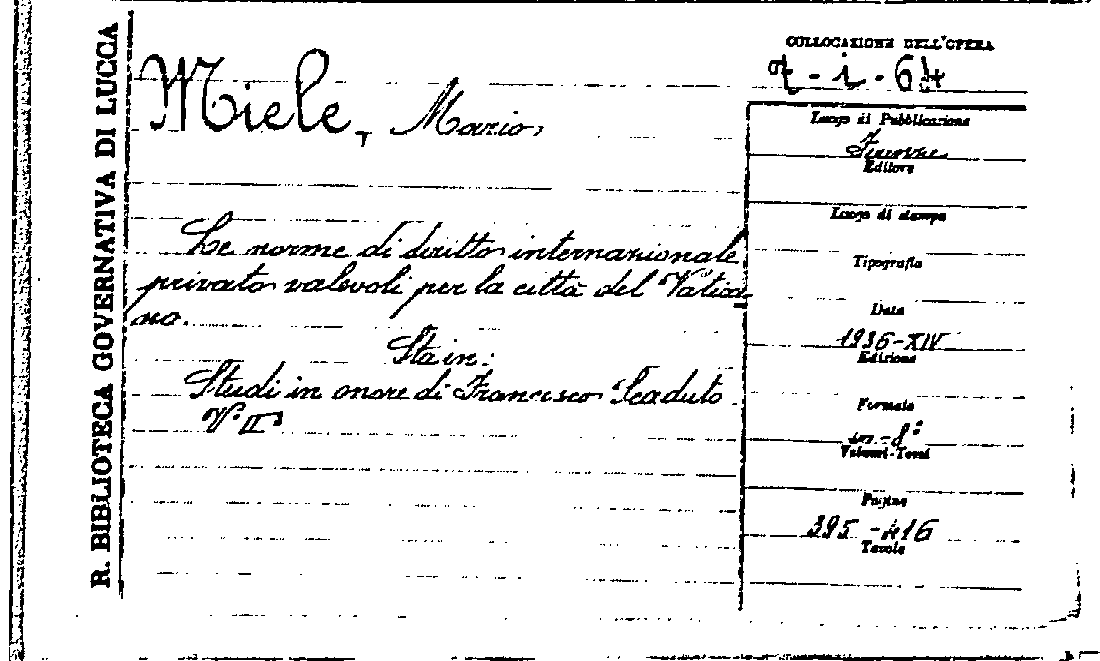 R. BIBLIOTECA GOVERNATIVA DI LUCCA
Miele, Mario
Le norme di diritto internazionale
privato valevoli per la città del Vatica-
no.
Sta in:
Studi in onore di Francesco Scaduto.
V. II°
COLLOCAZIONE DELL'OPERA
-i-64
Luogo di Pubblicazione
Firenze
Editore
Luogo di stampa
Tipografia
Data
1936-XIV
Edizione
Formato
in-8°
Volumi-Tomi
Pagine
395-416
Tavole